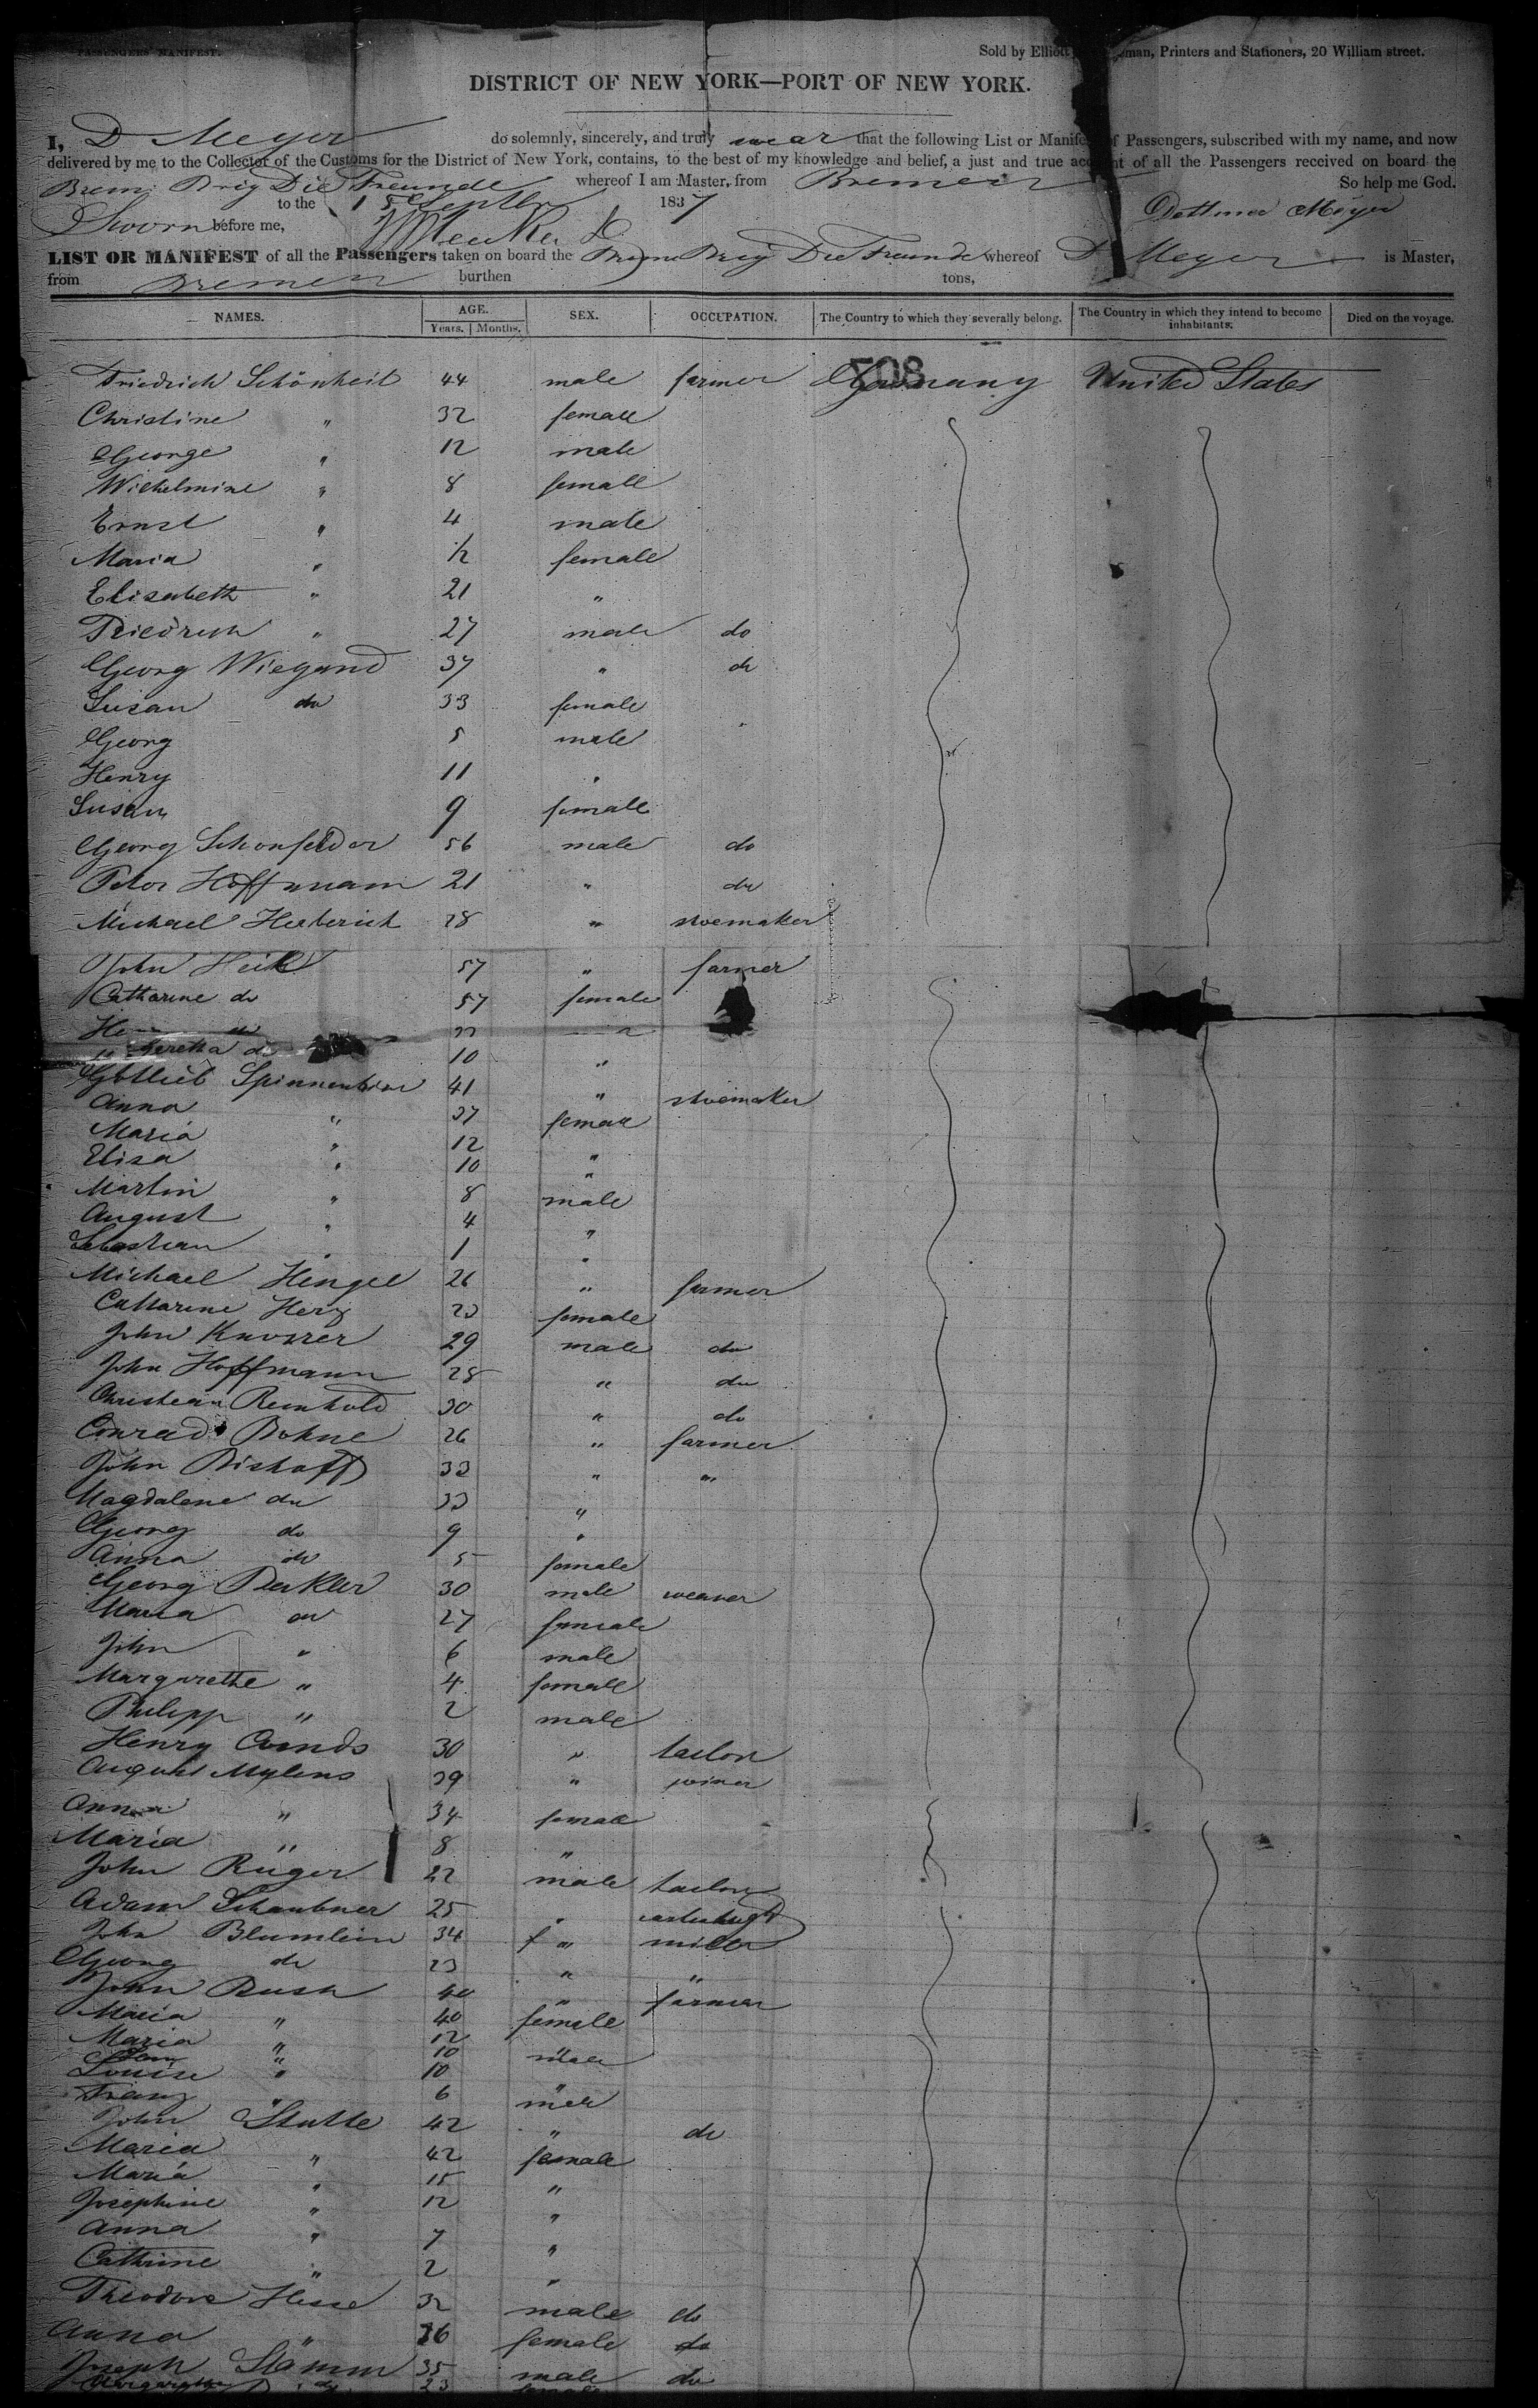 PASSENGERS' MANIFEST.
Sold by Elliott man, Printers and Stationers, 20 William street.
DISTRICT OF NEW YORK—PORT OF NEW YORK.
I, D Meyer do solemnly, sincerely, and truly swear that the following List or Manifest of Passengers, subscribed with my name, and now
delivered by me to the Collector of the Customs for the District of New York, contains, to the best of my knowledge and belief, a just and true account of all the Passengers received on board the
Brem: Brig Die Freunde whereof I am Master, from Bremen
So help me God.
to the 15 Septbr 1837
Sworn before me, Meyer
LIST OR MANIFEST of all the Passengers taken on board the Brem Brig Die Freunde whereof D Meyer is Master,
from Bremen burthen tons,
NAMES. AGE. SEX. OCCUPATION. The Country to which they severally belong. The Country in which they intend to become inhabitants. Died on the voyage.
Years. Months.
508
Friedrich Schönheit 44 male farmer Germany United States
Christine " 32 female
George " 12 male
Wilhelmine " 8 female
Ernst " 4 male
Maria " 1/2 female
Elisabeth " 21 "
Friedrich " 27 male do
Georg Wiegand 37 " do
Susan do 33 female
Georg 5 male
Henry 11 "
Susan 9 female
Georg Schonfelder 56 male do
Peter Hoffmann 21 " do
Michael Herberich 28 " shoemaker
John Heil 57 " farmer
Catharine do 57 female
do "
do 10 "
Gottlieb 41 " shoemaker
Anna " 37 female
Maria " 12 "
Elisa " 10 "
Martin " 8 male
August " 4 "
Sebastian " 1 "
Michael Hengel 26 " farmer
Catharine Herz 23 female
John 29 male do
John Hoffmann 28 " do
Christian Reinhold 30 " do
Conrad Bohne 26 " farmer
John Bishoff 33 " "
Magdalene do 33 "
Georg do 9 "
Anna do 5 female
Georg 30 male weaver
Maria do 27 female
John " 6 male
Margarethe " 4 female
Philipp " 2 male
Henry 30 " tailor
August Mylens 39 " joiner
Anna " 34 female
Maria " 8 "
John Rüger 22 male tailor
Adam Schaubner 25 "
John Blumlein 34 f " miller
Georg do 23 " "
John Bush 40 " farmer
Maria " 40 female
Maria " 12
" 10 male
Louise " 10 "
Franz " 6 male
John Stutte 42 " do
Maria " 42 female
Maria " 15 "
Josephine " 12 "
Anna " 7 "
Cathrine " 2 "
Theodore Hesse 32 male do
Anna " 36 female do
Joseph Stamm 35 male do
do 23 female